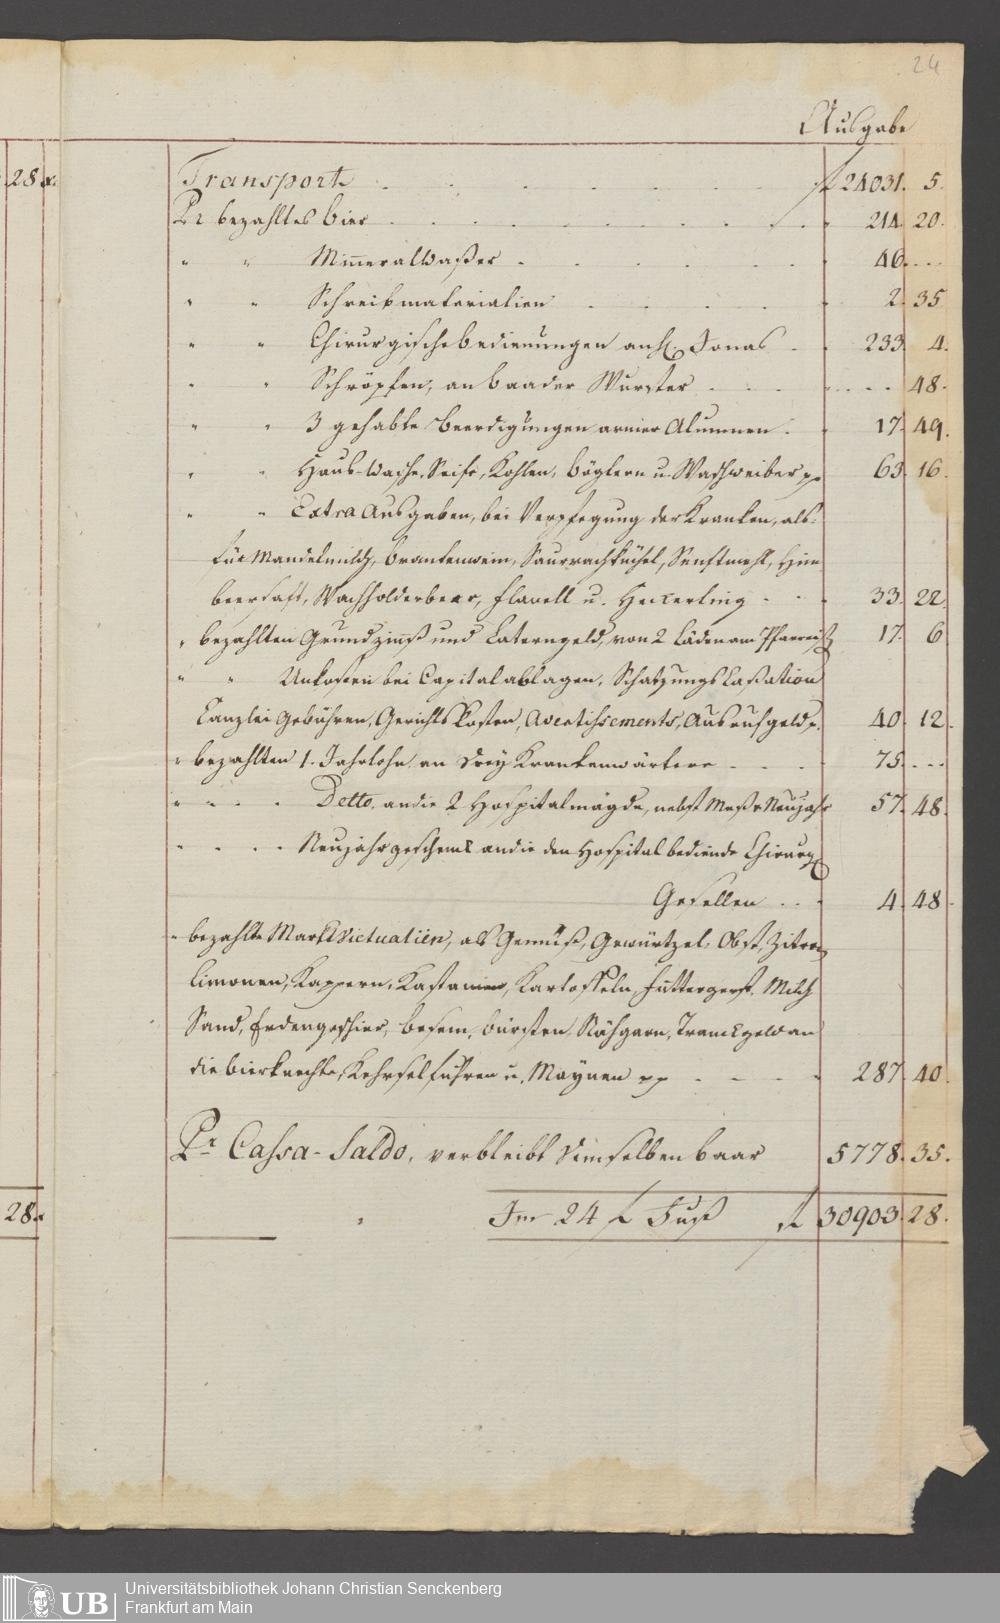 24
Ausgabe
28 x.
Transport . . . . . . . f 24031. 5.
Pr bezahltes Bier . . . . . . . 214. 20.
" " Mineralwaßer . . . . . 46. ...
" " Schreibmaterialien . . . . 2. 35
" " Chirurgische bedienungen an H. Jonas . . 233. 4.
" " Schröpfen, an baader Wurster . . . ... 48.
" " 3 gehabte Beerdigungen armer Alumnen . 17. 49.
" " Haus-Wasche, Seife, Kohlen, böglern u. Waschweiber pp 63. 16
" " Extra Ausgaben, bei Verpflegung der Kranken, als:
für Mandelmilch, brantenwein, Saurrachküchel, Senftmehl, Him
beersaft, Wachholderbeer, flanell u. Heckerling . . . 33. 22.
" bezahlten Grundzinß und Laterngeld, von 2 Läden am Pfarreis 17. 6
" " Unkosten bei Capital ablagen, Schatzungs Caßation
Canzlei Gebühren, Gerichts Kosten, Avertissements, Ausrufgeld p. 40. 12.
" bezahlten 1. Jahrlohn an drey Krankenwärtere . . . . 75. ...
" " " " Detto, an die 2 Hospitalmägde, nebst Meß u Neujahr 57. 48.
" " " " Neujahrgeschenk an die den Hospital bediende Chirurg
Gesellen . . . 4. 48.
" bezahlte Marktvictualien, als Gemüß, Gewürtzel, Obst, Zitron
Limonen, Kappern, Kastanien, Kartoffeln, futtergerst, Milch
Sand, Erdengeschier, besem, bürsten, Nähgarn, Tranckgeld an
die bierknechte, Kehrselführen u. Maynen pp . . . . 287. 40.
Pr Cassa-Saldo, verbleibt demselben baar 5778. 35.
28 x
Im 24 f Fuß f 30903. 28.
UB
Universitätsbibliothek Johann Christian Senckenberg
Frankfurt am Main